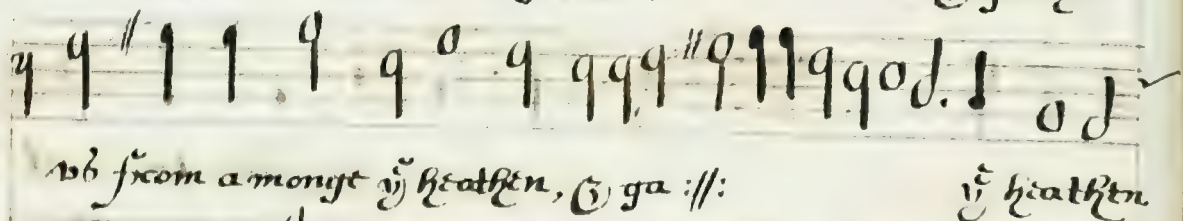 vs from amonge yͤ heathen, & ga :||: yͤ heathen